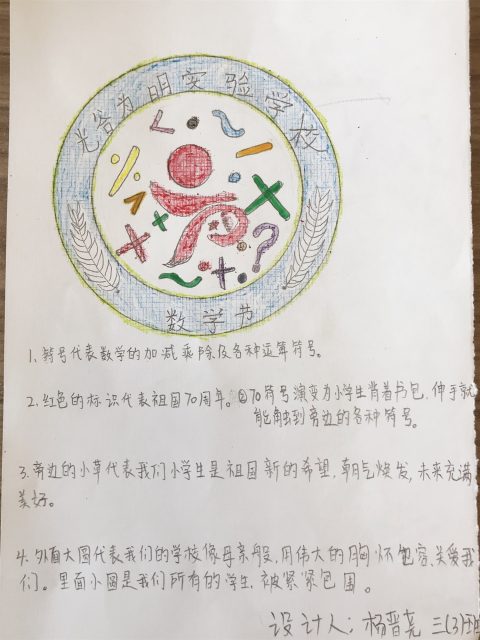 光谷为明实验学校
数学节
1、符号代表数学的加减乘除及各种运算符号。
2、红色的标识代表祖国70周年。②70符号演变为小学生背着书包,伸手就
能触到旁边的各种符号。
3、旁边的小草代表我们小学生是祖国新的希望,朝气焕发,未来充满
美好。
4、外面大圆代表我们的学校像母亲般,用伟大的胸怀包容、关爱我
们。里面小圆是我们所有的学生,被紧紧包围。
设计人:杨晋尧 三(3)班